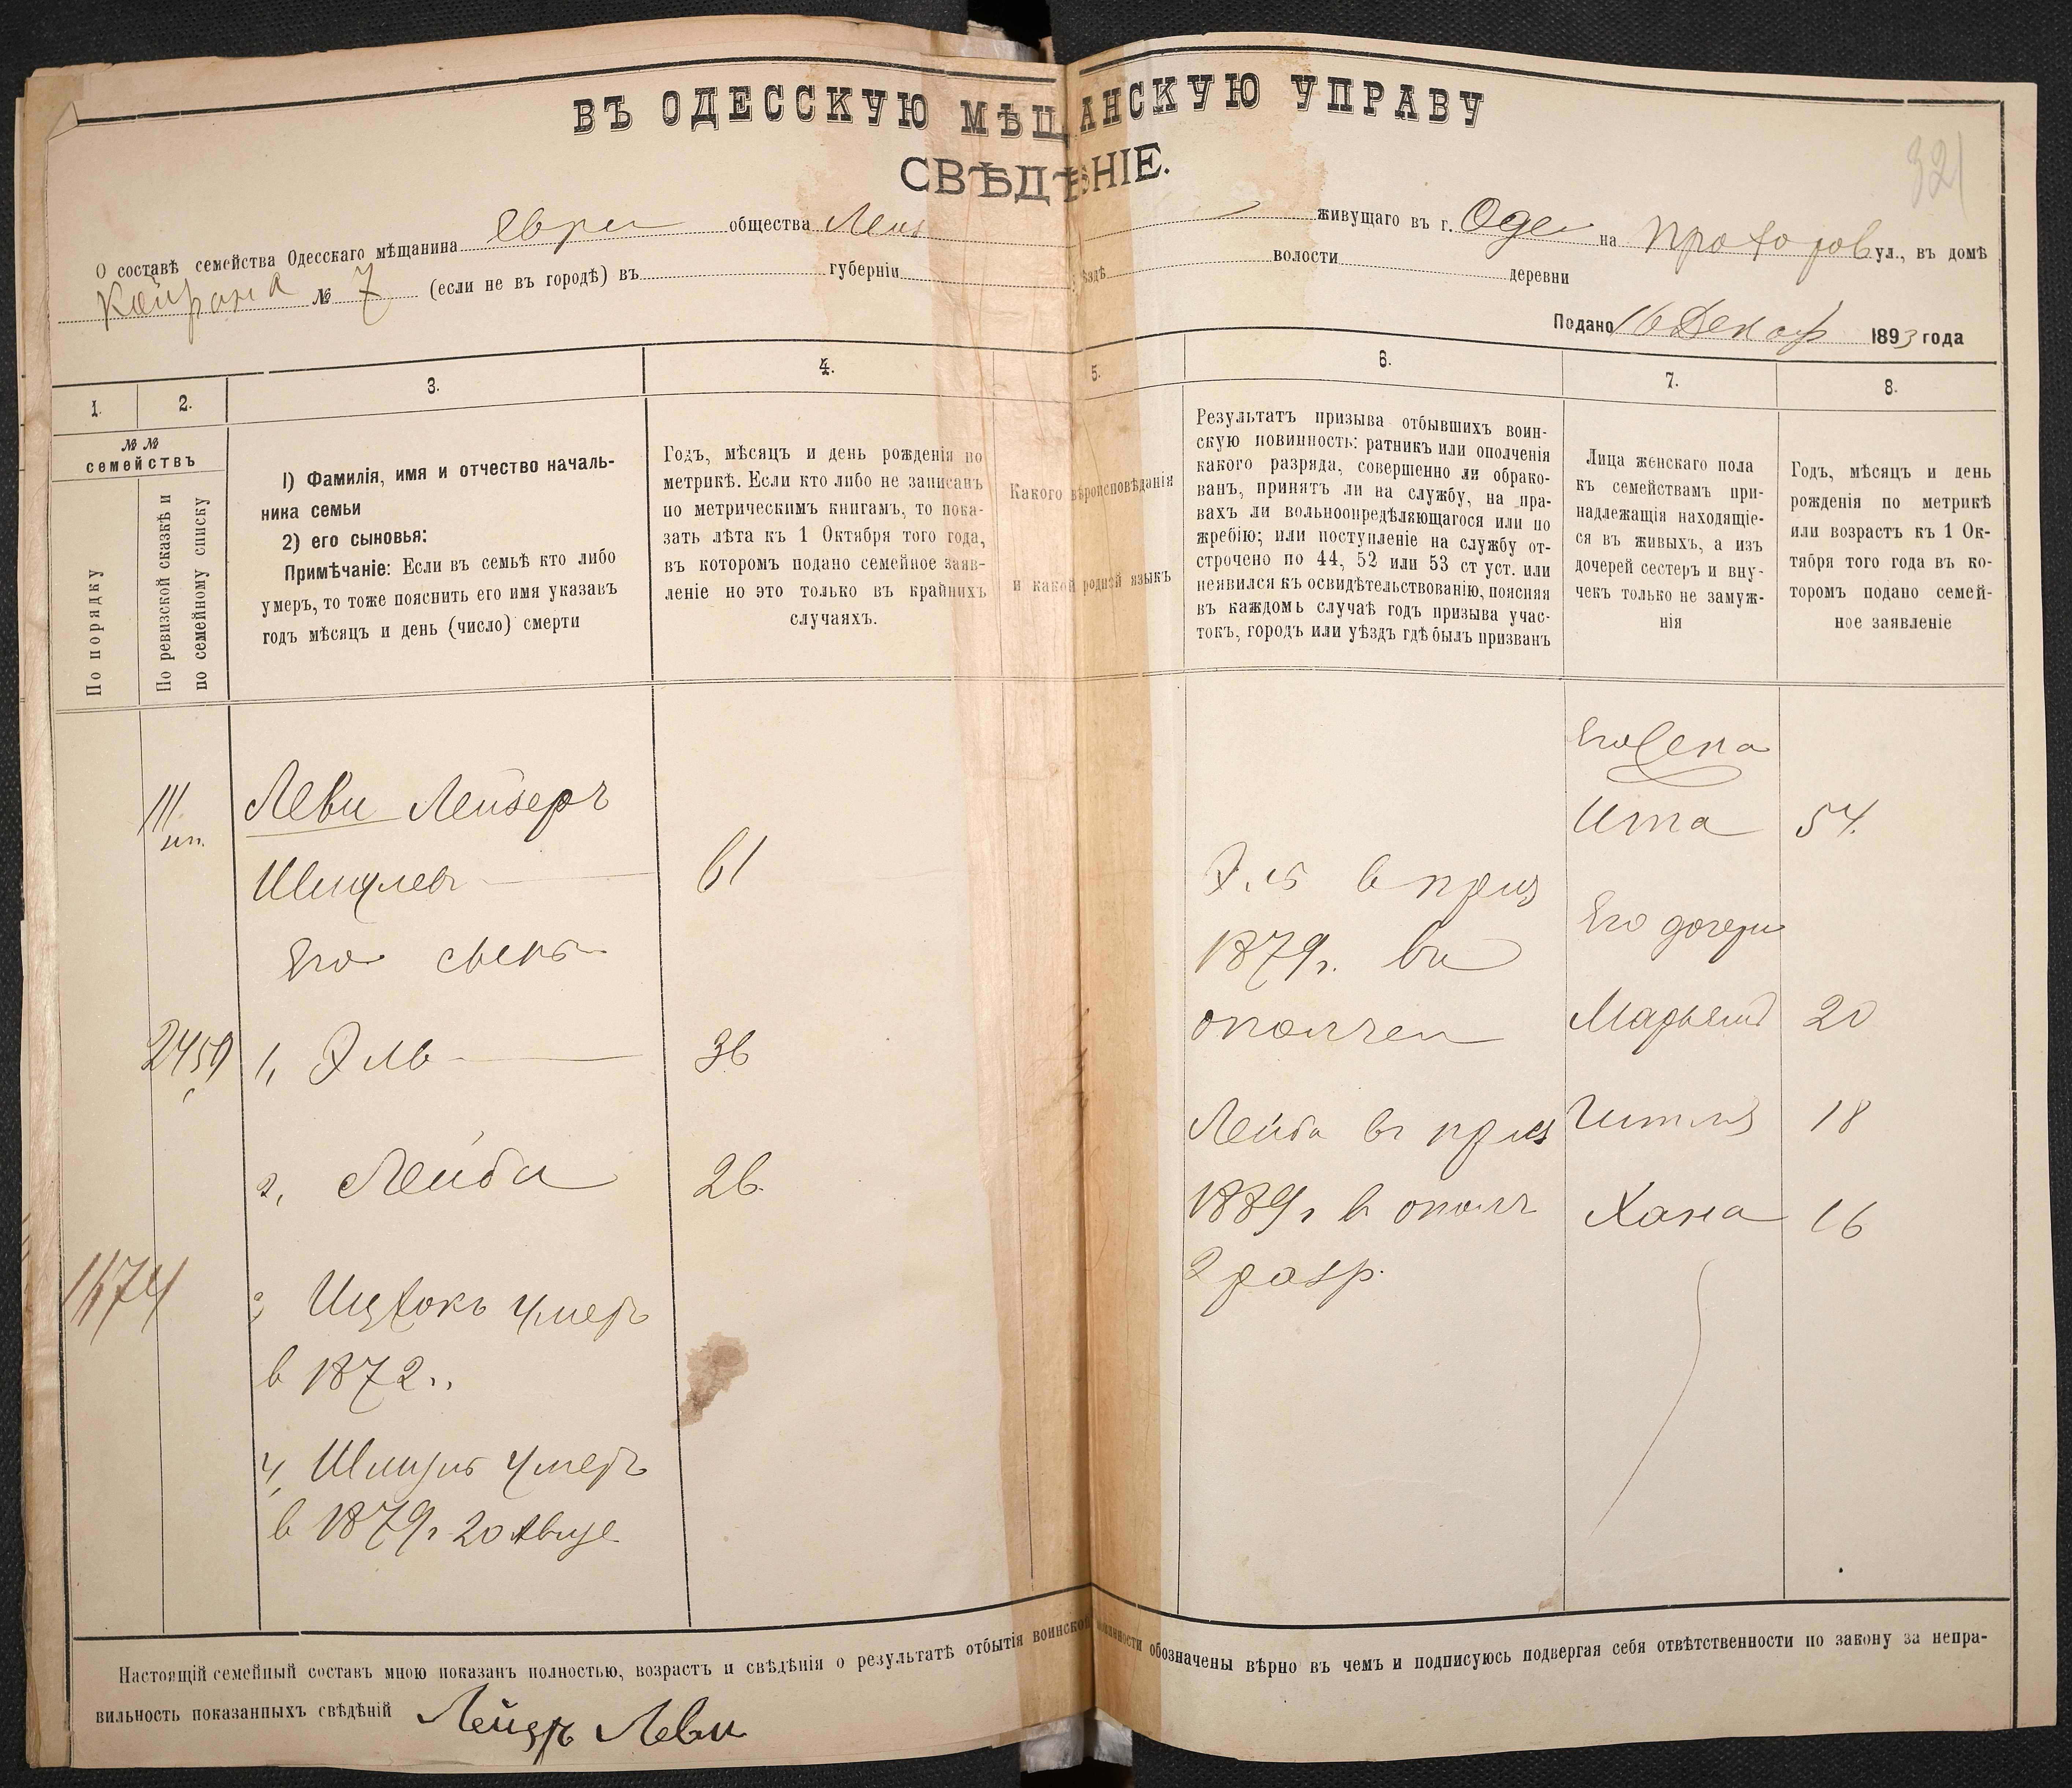 ВЪ ОДЕССКУЮ МѢЩАНСКУЮ УПРАВУ
СВѢДѢНІЕ.
321
О составѣ семейства Одесскаго мѣщанина Евреи общества живущаго въ г. Оде на Прохоров ул., въ домѣ
№ 7 (если не въ городѣ) въ губерніи уѣздѣ волости деревни
Подано 16 Декаб 1893 года
1. 2. 3. 4. 5. 6. 7. 8.
№ №
семействъ
По порядку
По ревизской сказкѣ и
по семейному списку
1) Фамилія, имя и отчество началь-
ника семьи
2) его сыновья:
Примѣчаніе: Если въ семьѣ кто либо
умеръ, то тоже пояснить его имя указавъ
годъ мѣсяцъ и день (число) смерти
Годъ, мѣсяцъ и день рожденія по
метрикѣ. Если кто либо не записанъ
по метрическимъ книгамъ, то пока-
зать лѣта къ 1 Октября того года,
въ которомъ подано семейное заяв-
леніе но это только въ крайнихъ
случаяхъ.
Какого вѣроисповѣданія
и какой родной языкъ
Результатъ призыва отбывшихъ воин-
скую повинность: ратникъ или ополченія
какого разряда, совершенно ли обрако-
ванъ, принятъ ли на службу, на пра-
вахъ ли вольноопредѣляющагося или по
жребію; или поступленіе на службу от-
строчено по 44, 52 или 53 ст уст. или
неявился къ освидѣтельствованію, поясняя
въ каждомъ случаѣ годъ призыва учас-
токъ, городъ или уѣздъ гдѣ былъ призванъ
Лица женскаго пола
къ семействамъ при-
надлежащія находящіе-
ся въ живыхъ, а изъ
дочерей сестеръ и вну-
чекъ только не замуж-
нія
Годъ, мѣсяцъ и день
рожденія по метрикѣ
или возрастъ къ 1 Ок-
тября того года въ ко-
торомъ подано семей-
ное заявленіе
Леви Лейзеръ
Шмулев 61
Его сыпов
2459 1, Эль 36
2, Лейба 26
1674
3, Ицхокъ умеръ
в 1872 г.
4, Шмуль умеръ
в 1879 г 20 Авгус
Эль в приз
1879 г. в
ополчен
Лейба въ приз
1889 г в ополч
2 разр.
Его жена
Ита 54.
Его дочери
Марьям 20
Гитля 18
Хана 16
Настоящій семейный составъ мною показанъ полностью, возрастъ и свѣдѣнія о результатѣ отбытія воинской повинности обозначены вѣрно въ чемъ и подписуюсь подвергая себя отвѣтственности по закону за непра-
вильность показанныхъ свѣдѣній Лейзръ Леви